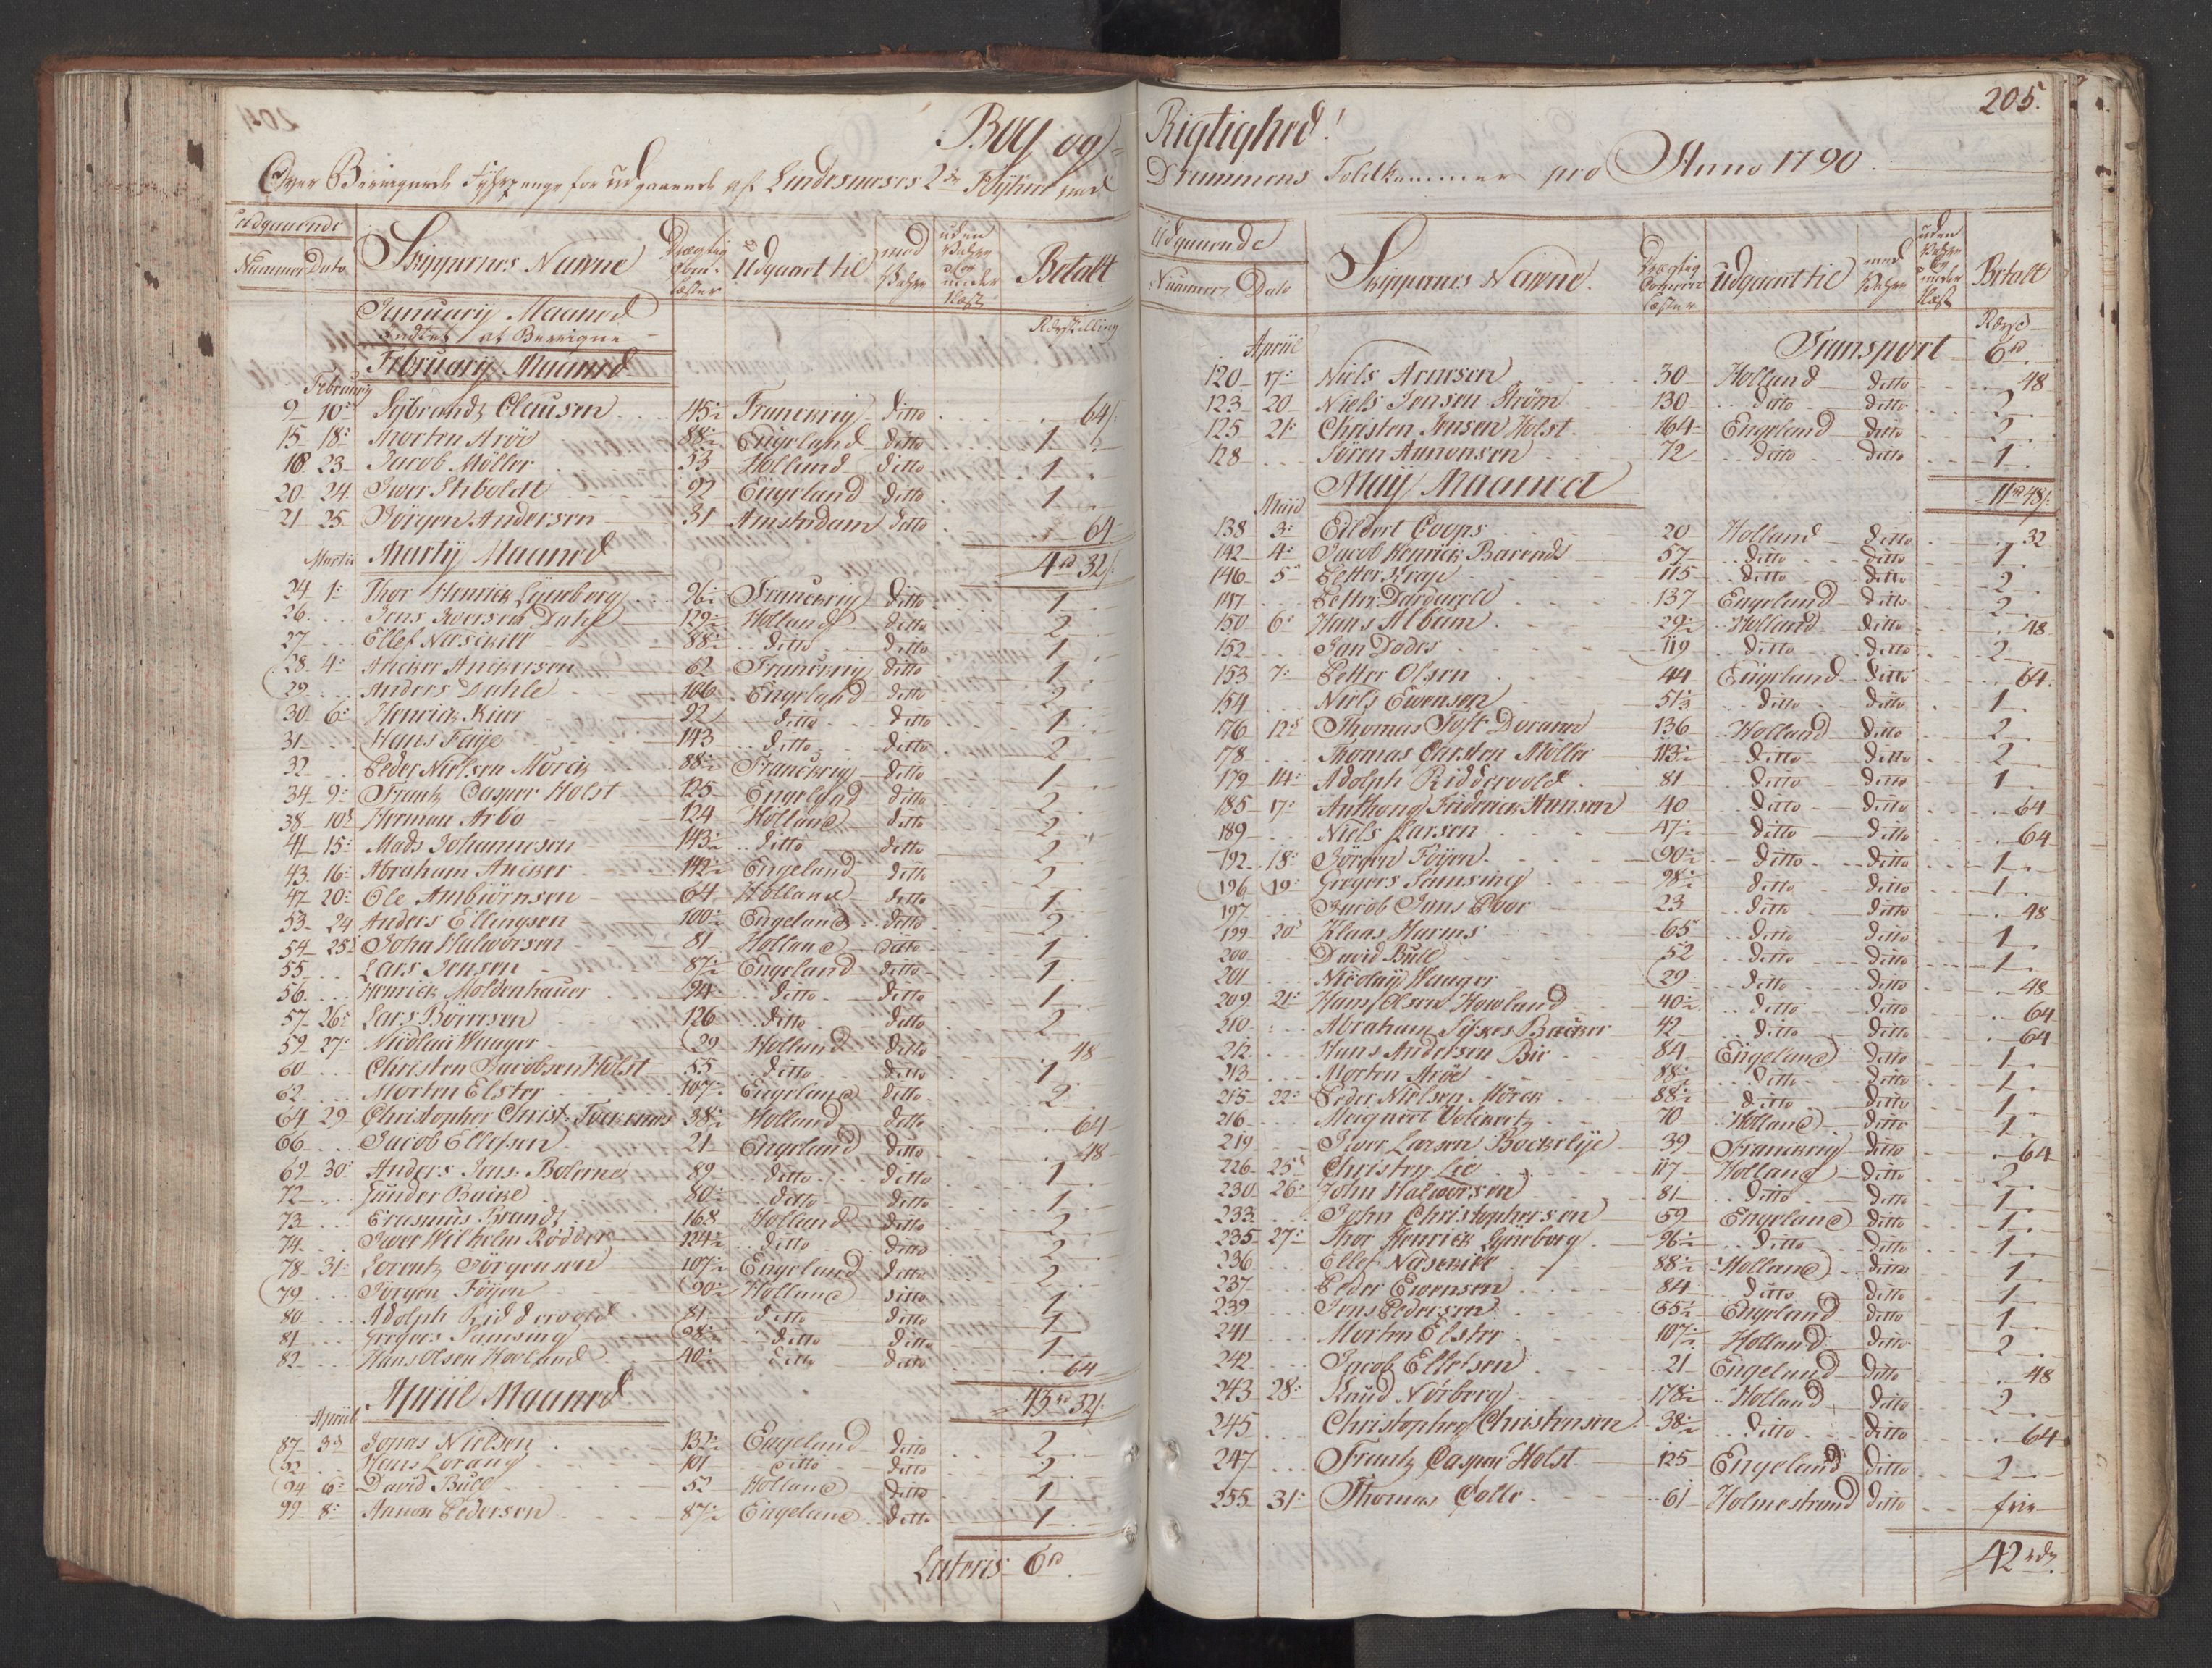 204
Bog og
Over Beregnede Fyhrpenge for udgaaende af Lindesneses 2de Fyhrer med
Udgaaende
Nummer Dato Skippernes Nawne Drægtig Com: læster Udgaaet til med Bahre uden Bahre og under Dæk Betalt
January Maaned
Rdr Skilling
Intet at Beregne
February Maaned
February
9 10: Sybrandt Clausen 45½ Franckrig ditto 64
15 18: Morten Aröe 88½ Engeland ditto 1
18 23 Jacob Möller 53 Holland ditto 1
20 24 Iwer Stiboldt 92 Engeland ditto 1
21 25 Jörgen Andersen 31 Amsterdam ditto 64
4rd 32s
Martii Martij Maaned
24 1: Thor Henrick Lÿneberg 96½ Franckrig ditto 1
26 Jens Iwersen Dahl 129½ Holland ditto 2
27 Ellef Naserier 88½ ditto ditto 1
28 4: Ancker Anckersen 62 Franckrig ditto 1
29 Anders Dahle 106 Engeland ditto 2
30 6: Henrick Kier 92 ditto ditto 1
31 Hans Faÿe 143 ditto ditto 2
32 Peder Nielsen Mörck 88½ Franckrig ditto 1
34 9: Frantz Casper Holst 125 Engeland ditto 2
38 10: Herman Arbo 124 Holland ditto 2
41 15: Mads Johannesen 143½ ditto ditto 2
43 16: Abraham Ancker 142½ Engeland ditto 2
47 20: Ole Ambiörnsen 64 Holland ditto 1
53 24 Anders Ellingsen 100½ Engeland ditto 2
54 25: John Halworsen 81 Holland ditto 1
55 Lars Jensen 87½ Engeland ditto 1
56 Henrick Moldenhauer 94 ditto ditto 1
57 26: Lars Börresen 126 ditto ditto 2
59 27: Nicolai Waager 29 Holland ditto 48
60 Christen Jacobsen Holst 55 ditto ditto 1
62 Morten Elster 107½ Engeland ditto 2
64 29 Christopher Christ: 38½ Holland ditto 64
66 Jacob Ellefsen 21 Engeland ditto 48
69 30: Anders Jens: Bolerne 89 ditto ditto 1
72 Gunder Backe 80½ ditto ditto 1
73 Erasmus Brandt 168 Holland ditto 2
74 Iwer Wilhelm Rödder 124½ ditto ditto 2
78 31: Lorentz Jörgensen 107½ Engeland ditto 2
79 Jörgen Föyen 90½ Holland ditto 1
80 Adolph Ridderwold 81 ditto ditto 1
81 Gregers Samsing 98½ ditto ditto 1
82 Hans Olsen Howland 40½ ditto ditto 64
43rd 32s
Apriil Apriil Maaned
87 3: Jonas Nielsen 132½ Engeland ditto 2
92 Hans Lorang 101 ditto ditto 2
94 6: David Bull 52 Holland ditto 1
99 8: Annon Pedersen 87½ Engeland ditto 1
Lateris 6rd
205.
Rigtighed!
Drammens Toldkammer pro Anno 1790
Udgaaende
Nummer Dato Skippernes Nawne. Drægtig Commerce læster udgaaet til med Bahre uden Bahre og under Dæk Betalt
Rdr s
Apriil Transport 6rd
120 17: Niels Arnesen 30 Holland ditto 48
123 20 Niels Jensen Ström 130 ditto ditto 2
125 21: Christen Jensen Holst 164 Engeland ditto 2
128 Sören Aanonsen 72 ditto ditto 1
Maij Maaned 11rd 48s
Maii
138 3: Eildert Coops 20 Holland ditto 32
142 4: Jacob Henrick Barends 57 ditto ditto 1
146 5: Petter Krap 115 ditto ditto 2
147 Petter Dardawell 137 Engeland ditto 2
150 6: Hans Album 29½ Holland ditto 48
152 Jan Dodes 119 ditto ditto 2
153 7: Petter Olsen 44 Engeland ditto 64
154 Niels Ewensen 51½ ditto ditto 1
176 12: Thomas Toft Doramm 136 Holland ditto 2
178 Thomas Carsten Möller 113½ ditto ditto 2
179 14: Adolph Ridderwold 81 ditto ditto 1
185 17: Anthong Friderick Hansen 40 ditto ditto 64
189 Niels Larsen 47½ ditto ditto 64
192 18: Jörgen Föyen 90½ ditto ditto 1
196 19: Gregers Samsing 98½ ditto ditto 1
197 Jacob Jans Boor 23 ditto ditto 48
199 20: Klaas Harms 65 ditto ditto 1
200 David Bull 52 ditto ditto 1
201 Nicolaij Waager 29 ditto ditto 48
209 21: Hans Olsen Howland 40½ ditto ditto 64
210 Abraham Syskes Backer 42 ditto ditto 64
212 Hans Andersen Bie 84 Engeland ditto 1
213 Morten Aröe 88½ ditto ditto 1
215 22: Peder Nielsen Mörck 88½ ditto ditto 1
216 Meigneert Volckertz 70 Holland ditto 1
219 Iwer Larsen Backelÿe 39 Franckrig ditto 64
226 25: Christen Lie 117 Holland ditto 2
230 26: John Halworsen 81 ditto ditto 1
233 John Christophersen 59 Engeland ditto 1
235 27: Thor Henrick Lÿneborg 96½ ditto ditto 1
236 Ellef Naserier 88½ Holland ditto 1
237 Peder Ewensen 84 ditto ditto 1
239 Jens Pedersen 55½ Engeland ditto 1
241 Morten Elster 107½ Holland ditto 2
242 Jacob Ellefsen 21 Engeland ditto 48
243 28: Knud Nörberg 178½ Holland ditto 2
245 Christopher Christensen 38½ ditto ditto 64
247 Frantz Casper Holst 125 Engeland ditto 2
255 31: Thomas Colle 61 Holmestrand ditto frie
42 rdr